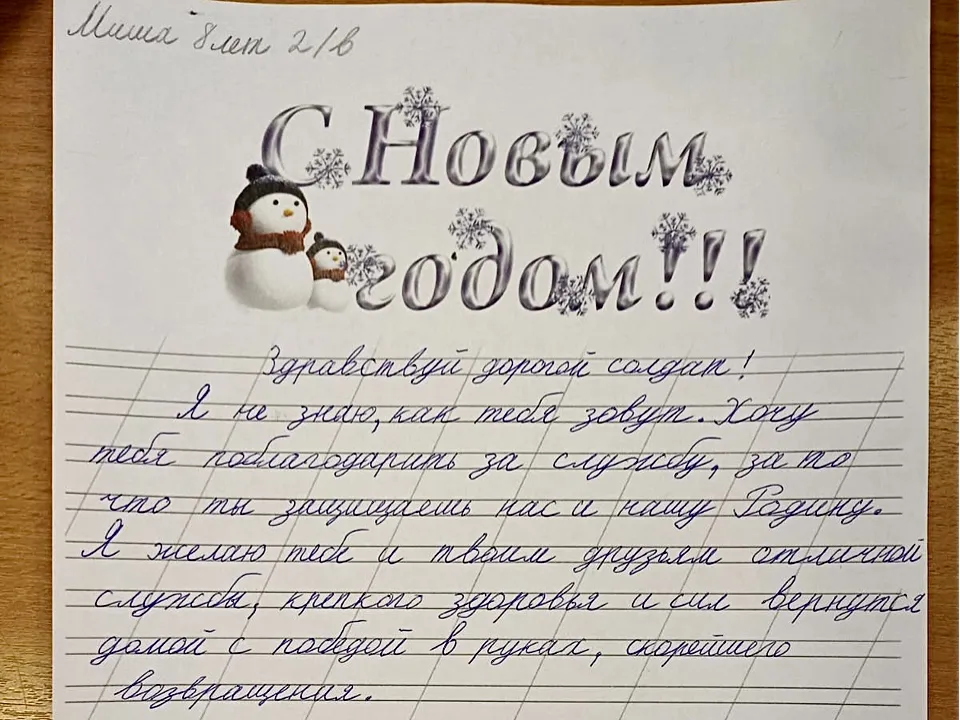 Миша 8 лет 2/в
С Новым
годом!!!
Здравствуй дорогой солдат!
Я не знаю, как тебя зовут. Хочу
тебя поблагодарить за службу, за то
что ты защищаешь нас и нашу Родину.
Я желаю тебе и твоим друзьям отличной
службы, крепкого здоровья и сил вернутся
домой с победой в руках, скорейшего
возвращения.